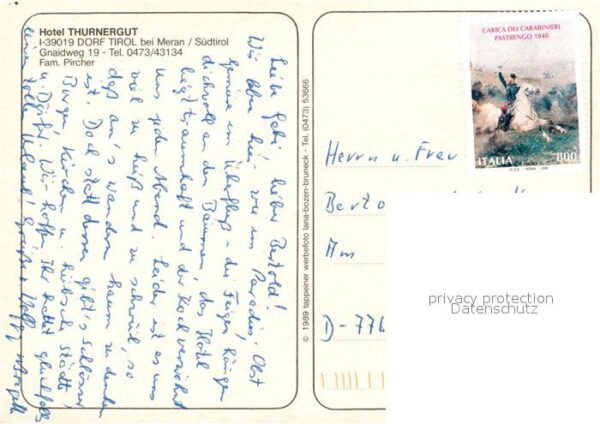 Hotel THURNERGUT
I-39019 DORF TIROL bei Meran / Südtirol
Gnaidweg 19 - Tel. 0473/43134
Fam. Pircher
Liebe Gabi, lieber Bertold!
Wir leben hier wie im Paradies. Obst
Gemüse im Überfluß - die Feigen hängen
dichvoll an den Bäumen, das Hotel
liegt traumhaft und der Koch verwöhnt
uns jeden Abend. Leider ist es uns
viel zu heiß und zu schwül, so
daß an's Wandern kaum zu denken
ist. Doch statt dessen gibt's Schlösser
Burgen, Kirchen u. hübsche Städte
u. Dörfer. Wir hoffen Ihr hattet gleichfalls
einen tollen Urlaub! Grüße
© 1989 tappeiner werbefoto lana-bozen-bruneck - Tel. (0473) 53666
CARICA DEI CARABINIERI
PASTRENGO 1848
ITALIA 800
Herrn u. Frau
Berto
Am
D-776
privacy protection
Datenschutz